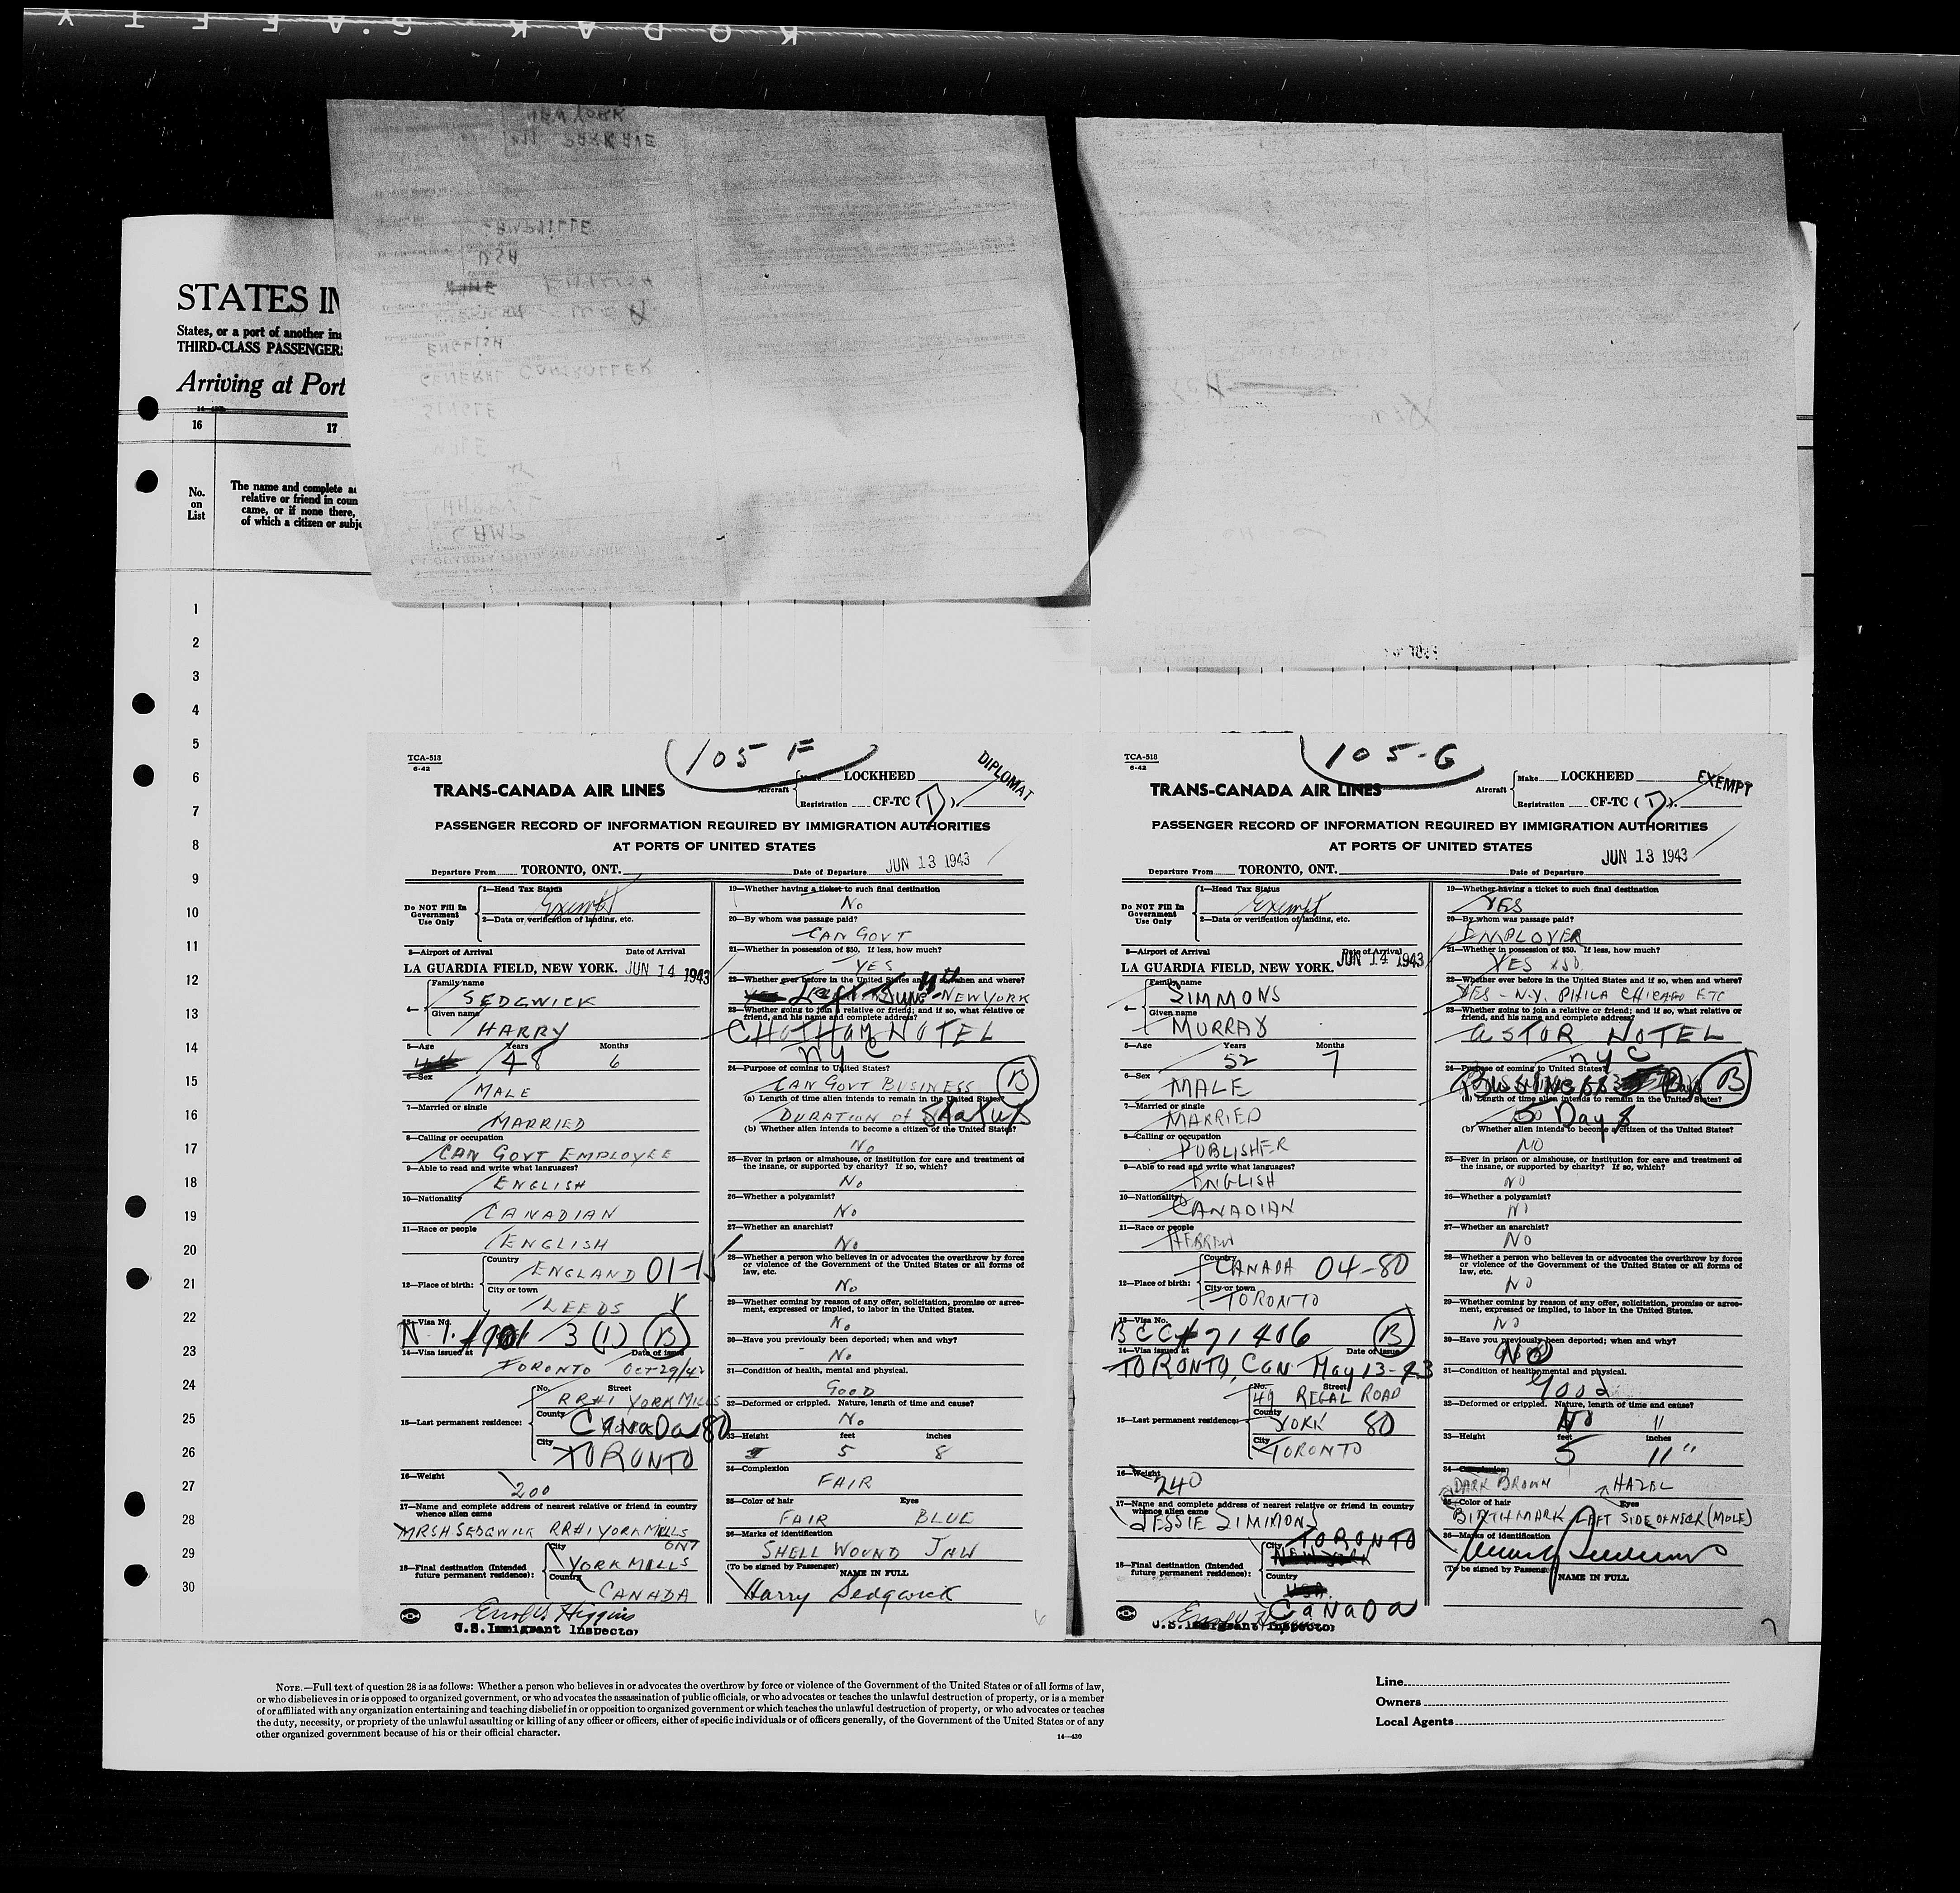 STATES IN
States, or a port of another ins
THIRD-CLASS PASSENGERS
Arriving at Port
16
17
No.
on
List
The name and complete ad
relative or friend in coun
came, or if none there,
of which a citizen or subje
NEW YORK
PARK AVE
USA
ENGLISH
GENERAL CONTROLLER
SINGLE
HARRY
CAMP
LA GUARDIA FIELD, NEW YORK
1
2
3
4
5
6
7
8
9
10
11
12
13
14
15
16
17
18
19
20
21
22
23
24
25
26
27
28
29
30
105 F
TCA-518
6-42
DIPLOMAT
TRANS-CANADA AIR LINES
Aircraft
Make LOCKHEED
Registration CF-TC (T)
PASSENGER RECORD OF INFORMATION REQUIRED BY IMMIGRATION AUTHORITIES
AT PORTS OF UNITED STATES
Departure From TORONTO, ONT. Date of Departure JUN 13 1943
Do NOT Fill In
Government
Use Only
1—Head Tax Status
Exempt
2—Data or verification of landing, etc.
3—Airport of Arrival Date of Arrival
LA GUARDIA FIELD, NEW YORK. JUN 14 1943
4—
Family name
SEDGWICK
Given name
HARRY
5—Age Years Months
48 6
6—Sex
MALE
7—Married or single
MARRIED
8—Calling or occupation
CAN GOVT EMPLOYEE
9—Able to read and write what languages?
ENGLISH
10—Nationality
CANADIAN
11—Race or people
ENGLISH
12—Place of birth:
Country
ENGLAND 01-15
City or town
LEEDS
13—Visa No.
3 (1) (B)
14—Visa issued at Date of issue
TORONTO OCT 29/42
15—Last permanent residence:
No. Street
RR#1 YORK MILLS
County
CANADA 80
City
TORONTO
16—Weight
200
17—Name and complete address of nearest relative or friend in country
whence alien came
MRS H SEDGWICK RR#1 YORK MILLS
ONT
18—Final destination (Intended
future permanent residence):
City
YORK MILLS
Country
CANADA
Higgins
U.S. Immigrant Inspector
19—Whether having a ticket to such final destination
No
20—By whom was passage paid?
CAN GOVT
21—Whether in possession of $50. If less, how much?
YES
22—Whether ever before in the United States and if so, when and where?
NEW YORK
23—Whether going to join a relative or friend; and if so, what relative or
friend, and his name and complete address?
CHATHAM HOTEL
NYC
24—Purpose of coming to United States?
CAN GOVT BUSINESS (B)
(a) Length of time alien intends to remain in the United States?
DURATION of Status
(b) Whether alien intends to become a citizen of the United States?
No
25—Ever in prison or almshouse, or institution for care and treatment of
the insane, or supported by charity? If so, which?
No
26—Whether a polygamist?
No
27—Whether an anarchist?
No
28—Whether a person who believes in or advocates the overthrow by force
or violence of the Government of the United States or all forms of
law, etc.
No
29—Whether coming by reason of any offer, solicitation, promise or agree-
ment, expressed or implied, to labor in the United States.
No
30—Have you previously been deported; when and why?
No
31—Condition of health, mental and physical.
GOOD
32—Deformed or crippled. Nature, length of time and cause?
No
33—Height feet inches
5 8
34—Complexion
FAIR
35—Color of hair Eyes
FAIR BLUE
36—Marks of identification
SHELL WOUND JAW
(To be signed by Passenger) NAME IN FULL
Harry Sedgwick
105-G
TCA-518
6-42
EXEMPT
TRANS-CANADA AIR LINES
Aircraft
Make LOCKHEED
Registration CF-TC (T)
PASSENGER RECORD OF INFORMATION REQUIRED BY IMMIGRATION AUTHORITIES
AT PORTS OF UNITED STATES
Departure From TORONTO, ONT. Date of Departure JUN 13 1943
Do NOT Fill In
Government
Use Only
1—Head Tax Status
Exempt
2—Data or verification of landing, etc.
3—Airport of Arrival Date of Arrival
LA GUARDIA FIELD, NEW YORK. JUN 14 1943
4—
Family name
SIMMONS
Given name
MURRAY
5—Age Years Months
52 7
6—Sex
MALE
7—Married or single
MARRIED
8—Calling or occupation
PUBLISHER
9—Able to read and write what languages?
ENGLISH
10—Nationality
CANADIAN
11—Race or people
HEBREW
12—Place of birth:
Country
CANADA 04-80
City or town
TORONTO
13—Visa No.
BCC# 71406 (B)
14—Visa issued at Date of issue
TORONTO, CAN. May 13-43
15—Last permanent residence:
No. Street
49 REGAL ROAD
County
YORK 80
City
TORONTO
16—Weight
240
17—Name and complete address of nearest relative or friend in country
whence alien came
JESSIE SIMMONS
TORONTO
18—Final destination (Intended
future permanent residence):
City
NEW YORK
Country
USA
CANADA
U.S. Immigrant Inspector
19—Whether having a ticket to such final destination
YES
20—By whom was passage paid?
EMPLOYER
21—Whether in possession of $50. If less, how much?
YES $50
22—Whether ever before in the United States and if so, when and where?
YES - N.Y. PHILA CHICAGO ETC
23—Whether going to join a relative or friend; and if so, what relative or
friend, and his name and complete address?
ASTOR HOTEL
NYC
24—Purpose of coming to United States?
BUSINESS (B)
(a) Length of time alien intends to remain in the United States?
5 Days
(b) Whether alien intends to become a citizen of the United States?
NO
25—Ever in prison or almshouse, or institution for care and treatment of
the insane, or supported by charity? If so, which?
NO
26—Whether a polygamist?
NO
27—Whether an anarchist?
NO
28—Whether a person who believes in or advocates the overthrow by force
or violence of the Government of the United States or all forms of
law, etc.
NO
29—Whether coming by reason of any offer, solicitation, promise or agree-
ment, expressed or implied, to labor in the United States.
NO
30—Have you previously been deported; when and why?
NO
31—Condition of health, mental and physical.
Good
32—Deformed or crippled. Nature, length of time and cause?
No "
33—Height feet inches
5 11"
34—Complexion
DARK BROWN HAZEL
35—Color of hair Eyes
BIRTHMARK LEFT SIDE OF NECK (MOLE)
36—Marks of identification
(To be signed by Passenger) NAME IN FULL
7
NOTE.—Full text of question 28 is as follows: Whether a person who believes in or advocates the overthrow by force or violence of the Government of the United States or of all forms of law,
or who disbelieves in or is opposed to organized government, or who advocates the assassination of public officials, or who advocates or teaches the unlawful destruction of property, or is a member
of or affiliated with any organization entertaining and teaching disbelief in or opposition to organized government or which teaches the unlawful destruction of property, or who advocates or teaches
the duty, necessity, or propriety of the unlawful assaulting or killing of any officer or officers, either of specific individuals or of officers generally, of the Government of the United States or of any
other organized government because of his or their official character.
14—430
Line
Owners
Local Agents